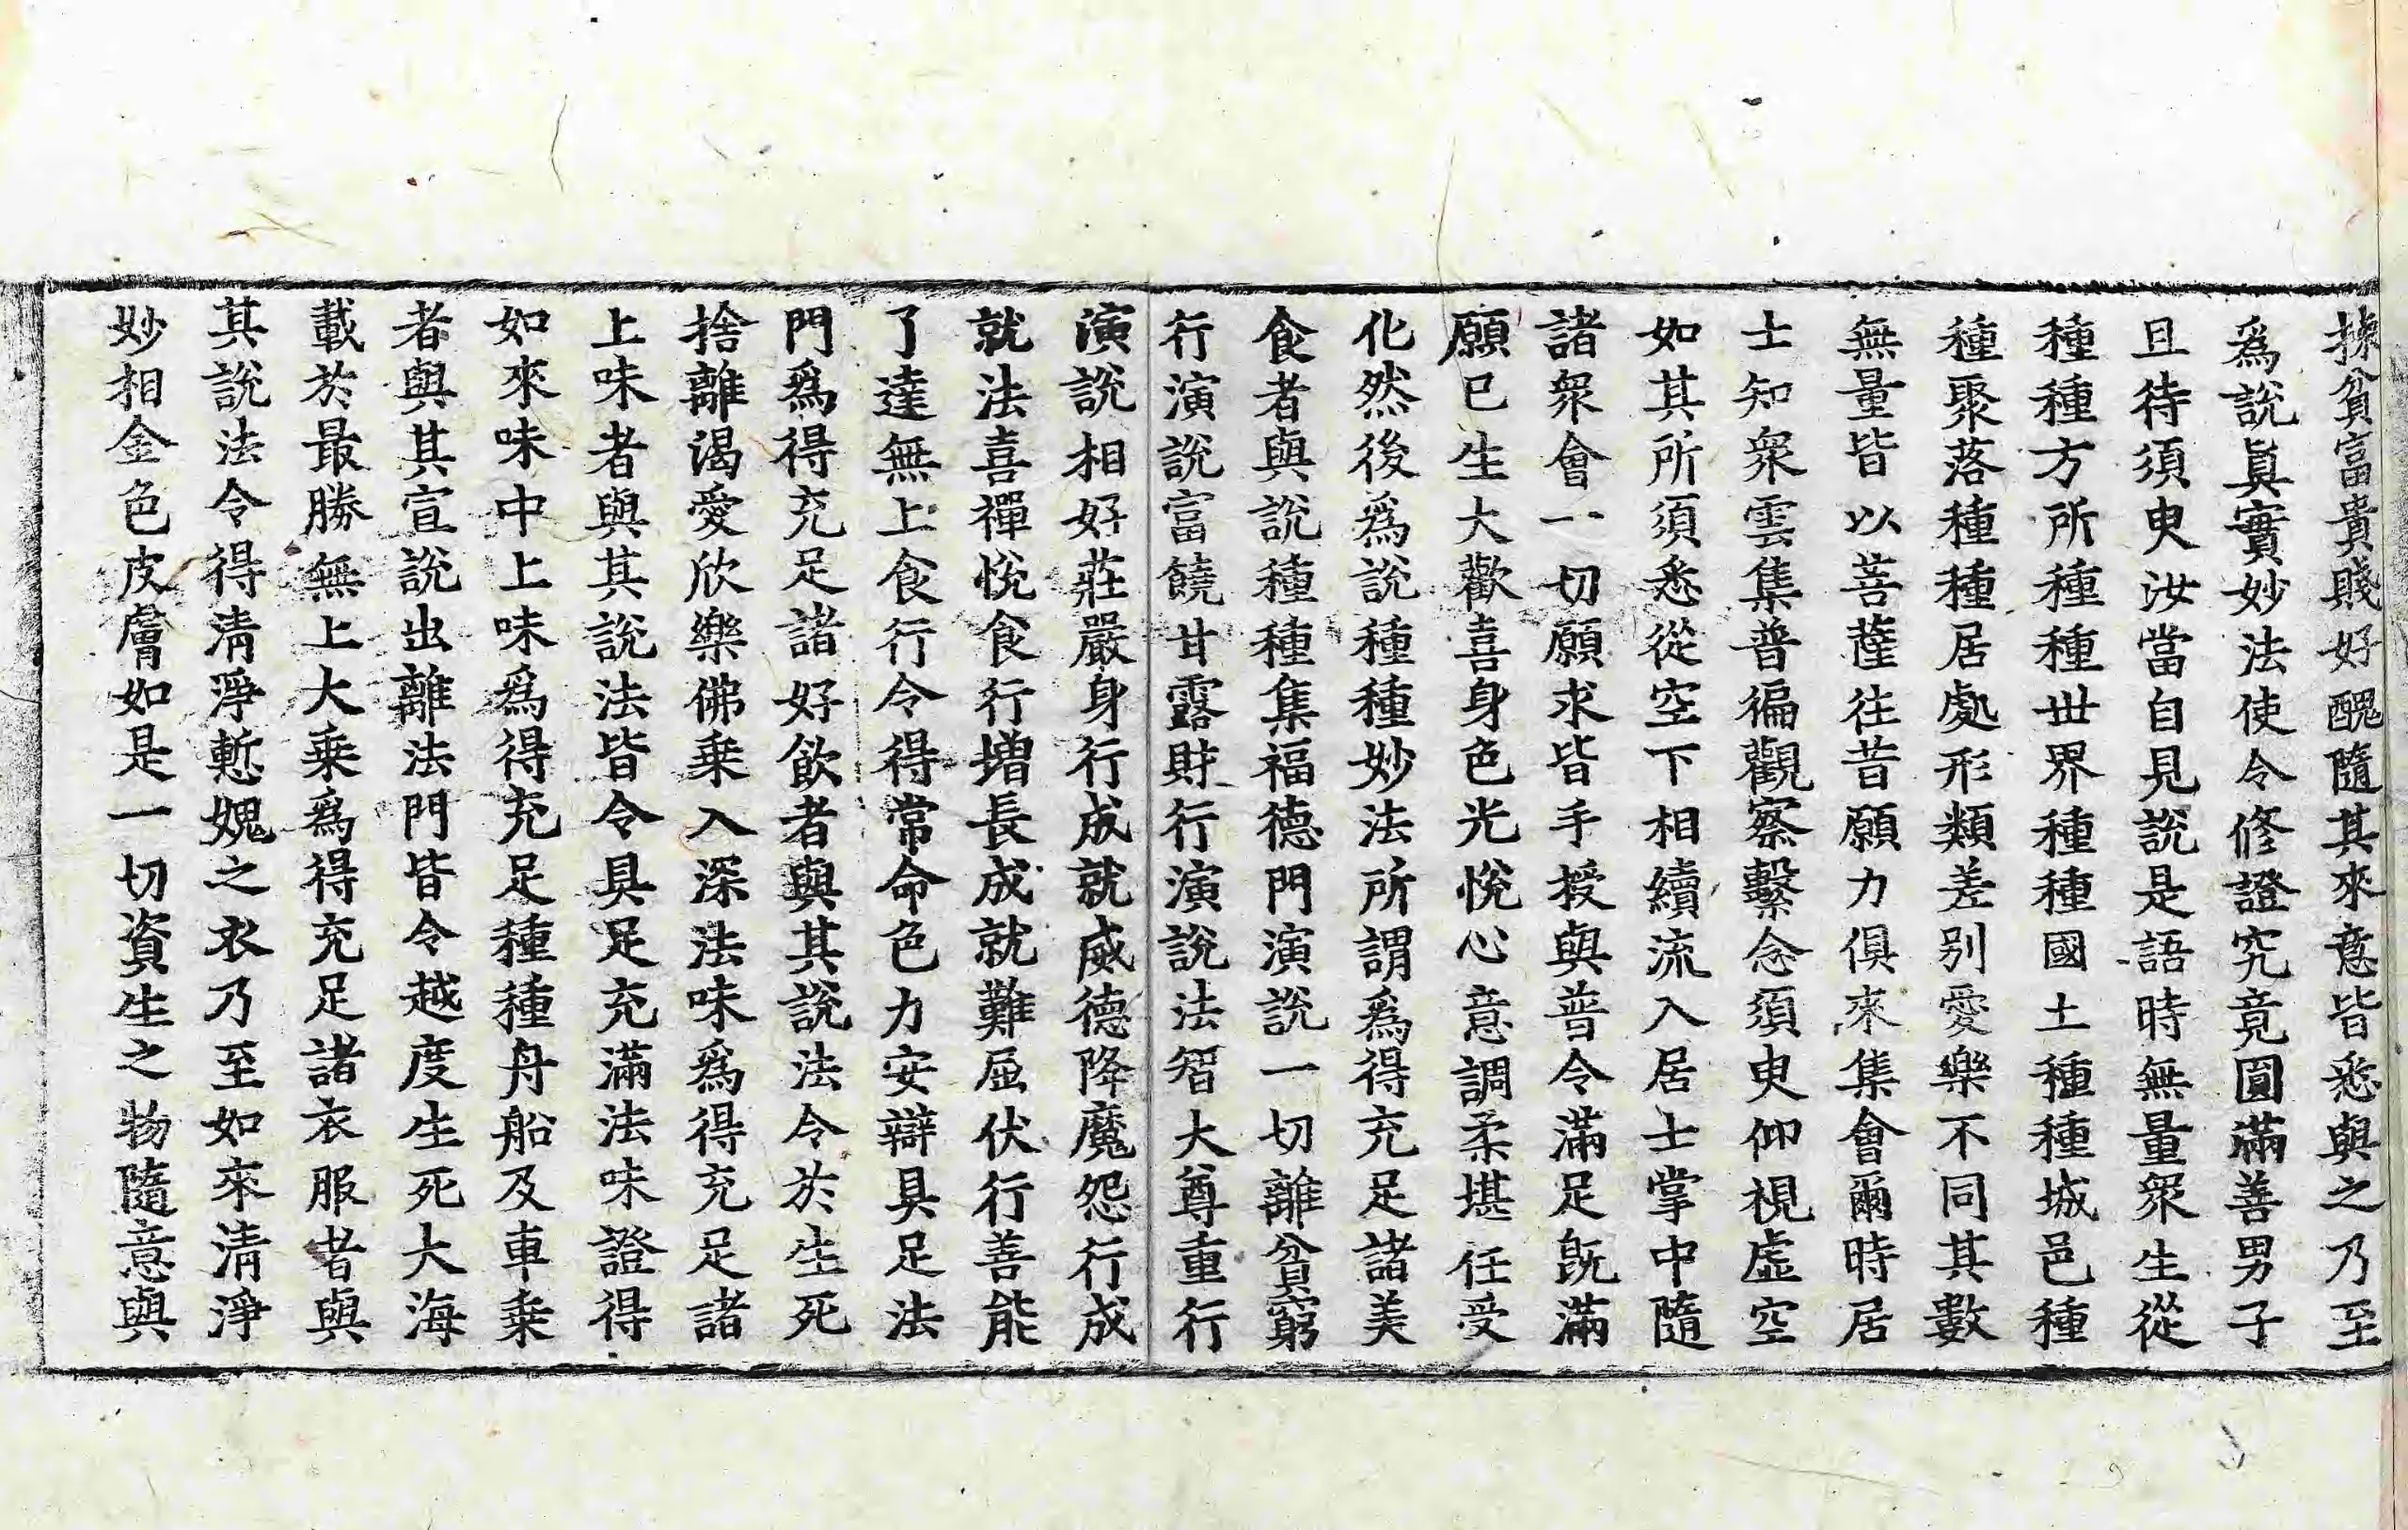 揀貧富貴賤好醜隨其來意皆悉與之乃至
爲說眞實妙法使令修證究竟圓滿善男子
且待須臾汝當自見說是語時無量眾生從
種種方所種種世界種種國土種種城邑種
種聚落種種居處形類差别愛樂不同其數
無量皆以菩薩往昔願力俱來集會爾時居
士知眾雲集普徧觀察繫念須臾仰視虛空
如其所須悉從空下相續流入居士掌中隨
諸眾會一切願求皆手授與普令滿足旣滿
願已生大歡喜身色光悅心意調柔堪任受
化然後爲說種種妙法所謂爲得充足諸美
食者與說種種集福德門演說一切離貧窮
行演說富饒甘露財行演說法智大尊重行
演說相好莊嚴身行成就威德降魔怨行成
就法喜禪悅食行增長成就難屈伏行善能
了達無上食行令得常命色力安辯具足法
門爲得充足諸好飲者與其說法令於生死
捨離渴愛欣樂佛乘入深法味爲得充足諸
上味者與其說法皆令具足充滿法味證得
如來味中上味爲得充足種種舟船及車乘
者與其宣說出離法門皆令越度生死大海
載於最勝無上大乘爲得充足諸衣服者與
其說法令得清淨慙媿之衣乃至如來清淨
妙相金色皮膚如是一切資生之物隨意與